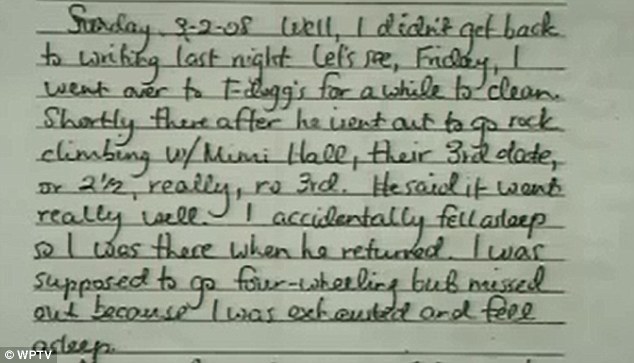 Sunday, 3-2-08 Well, I didn't get back
to writing last night. Let's see, Friday, I
went over to T-dogg's for a while to clean.
Shortly thereafter he went out to go rock
climbing w/Mimi Hall, their 3rd date,
or 2 1/2, really, so 3rd. He said it went
really well. I accidentally fell asleep
so I was there when he returned. I was
supposed to go four-wheeling but missed
out because I was exhausted and fell
asleep.
© WPTV